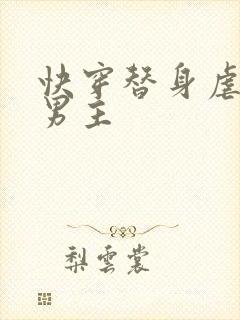 快穿替身虐
男主
梨雲裳